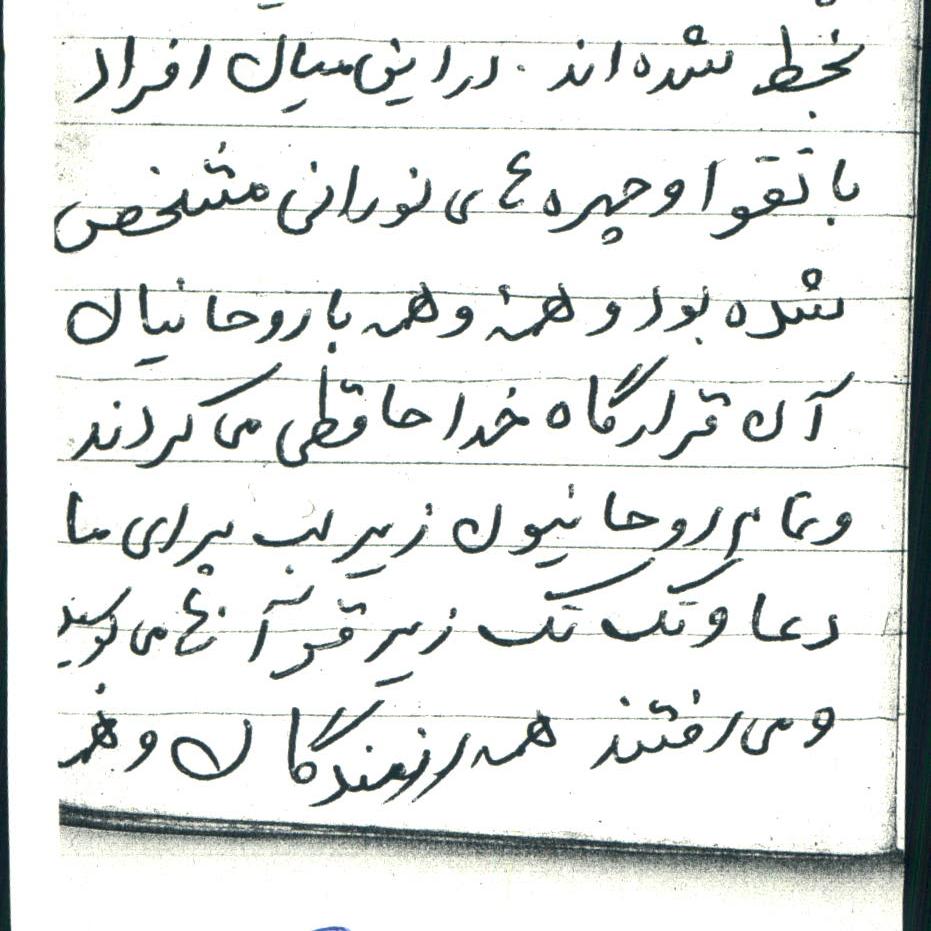 بخط شده اند. در این میان افراد
با تقوا و چهره های نورانی مشخص
شده بود و همه و همه با روحانیان
آن قرارگاه خداحافظی می کردند
و تمام روحانیون زیر لب برای ما
دعا و تک تک زیر قرآن ها می
و می رفتند همه رزمندگان و همه